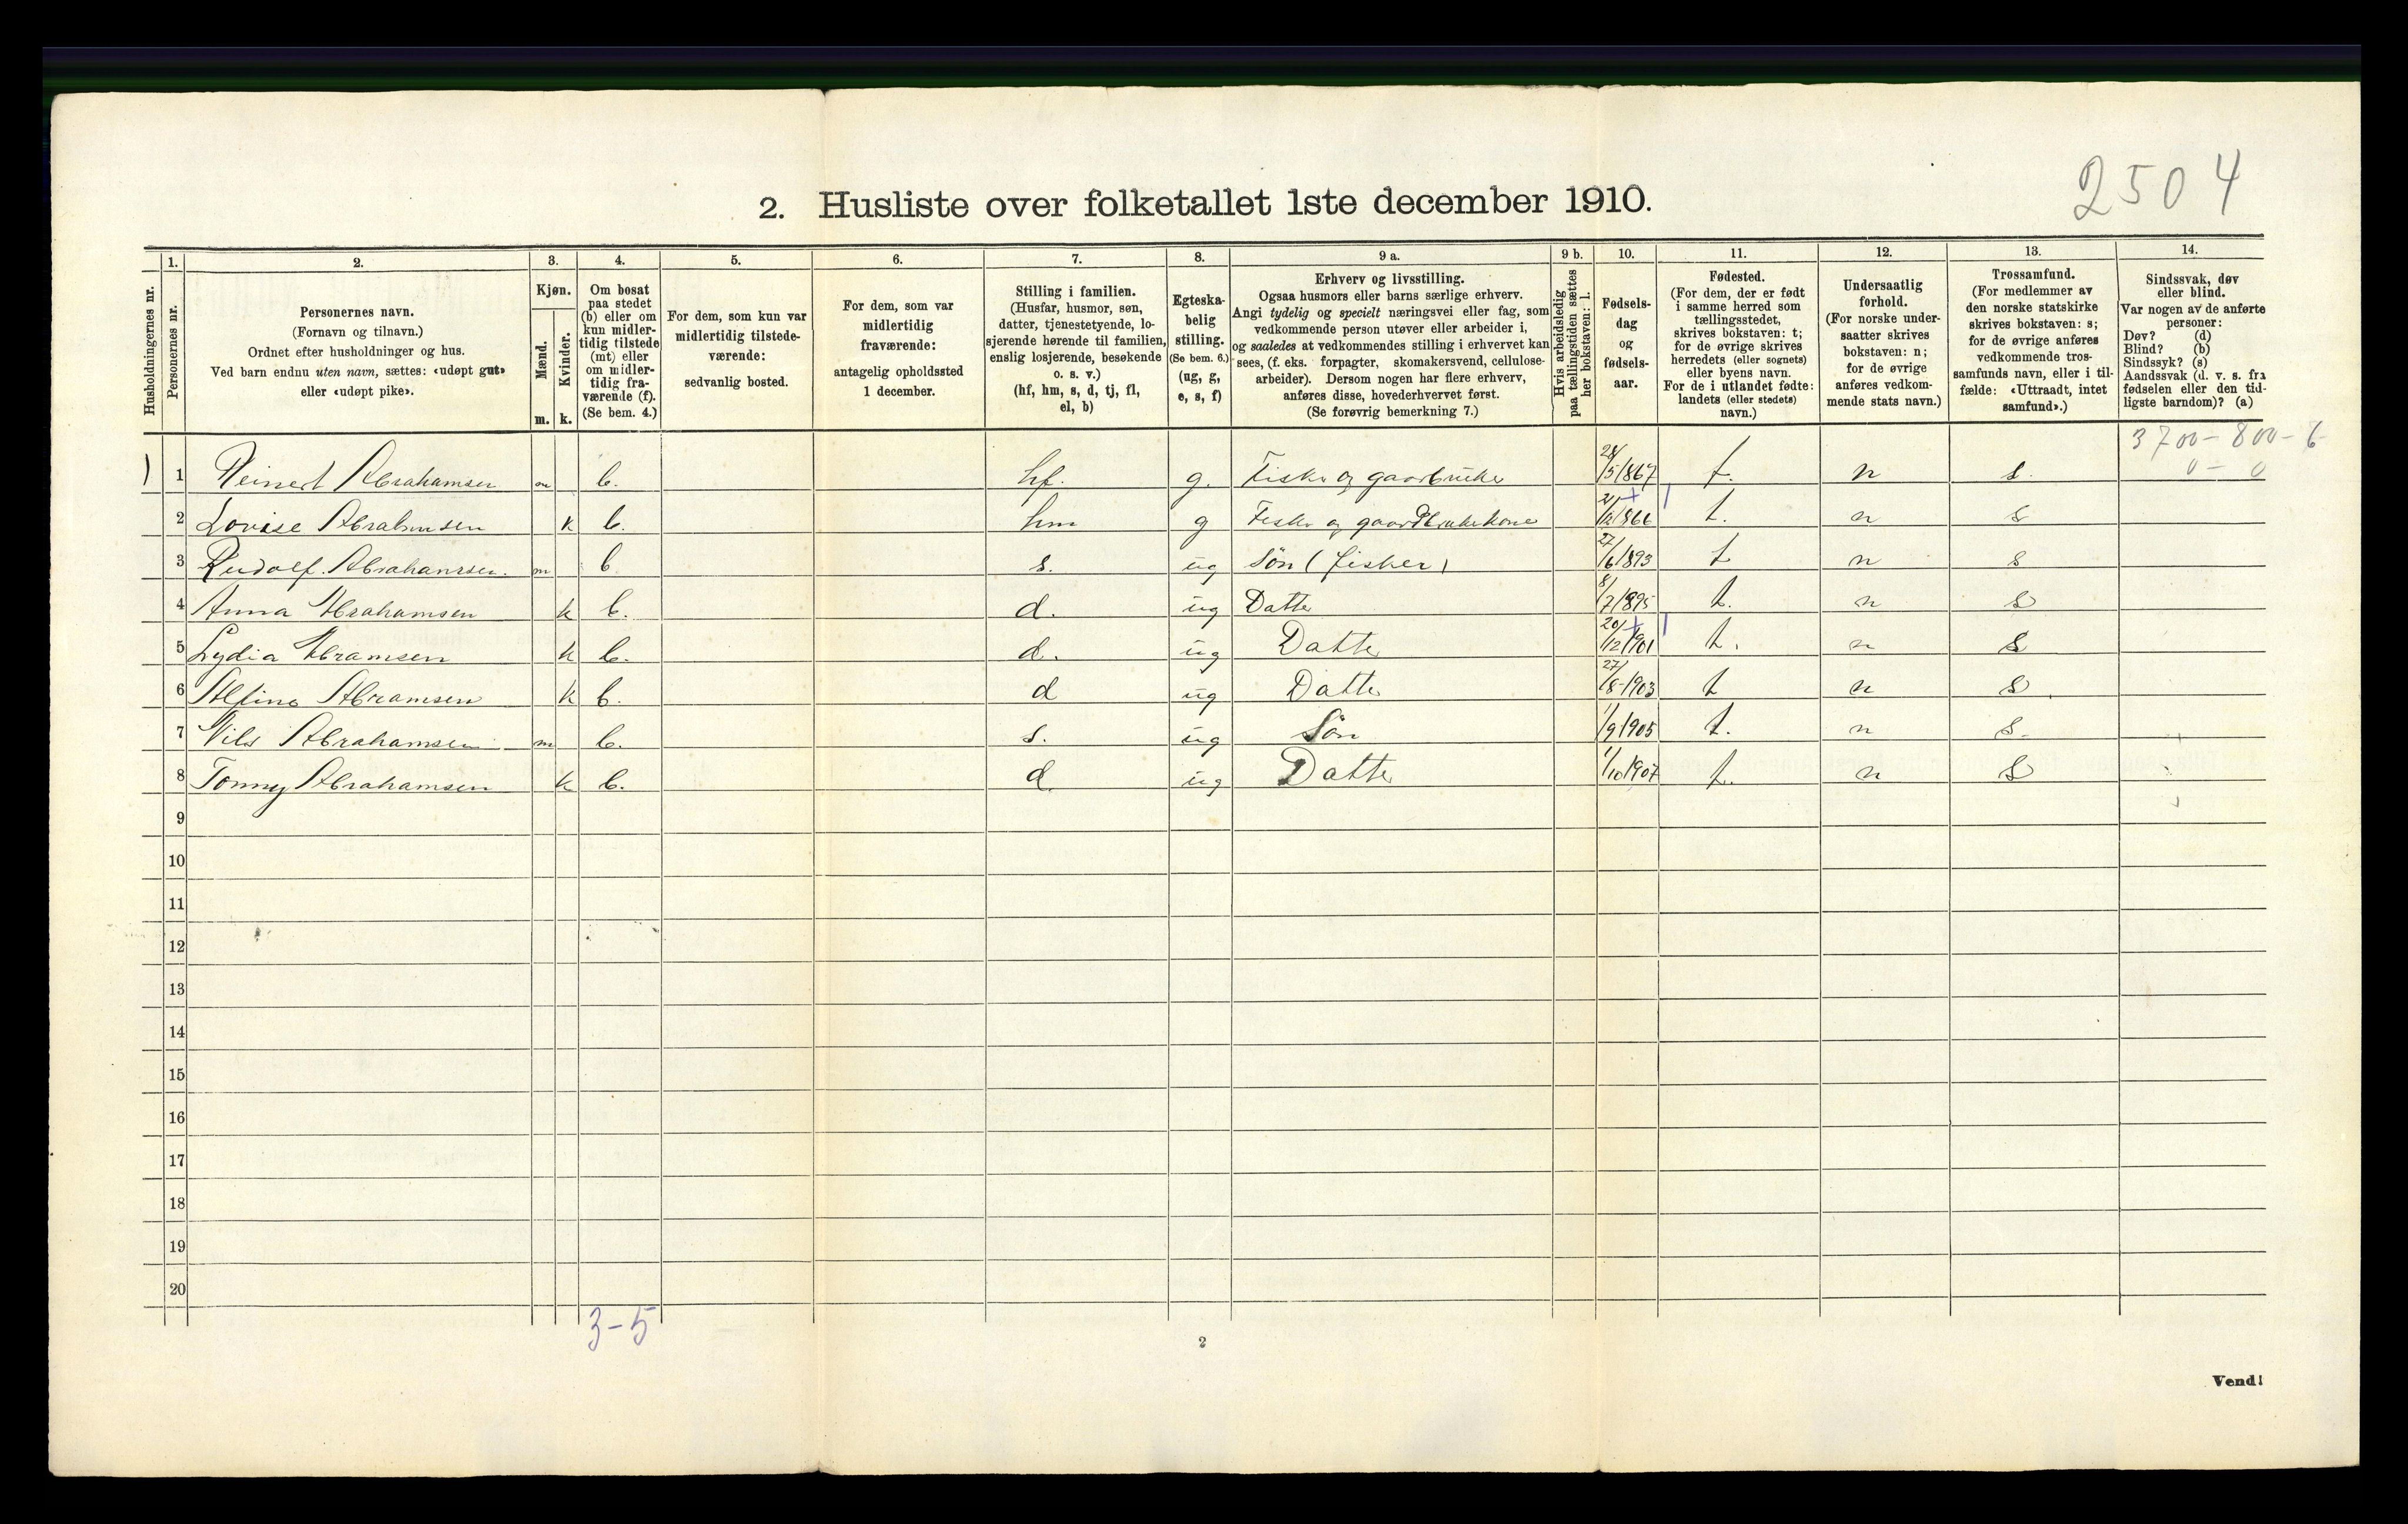 2504
2. Husliste over folketallet 1ste december 1910.
Husholdningernes nr.
1. Personernes nr.
2. Personernes navn.
(Fornavn og tilnavn.)
Ordnet efter husholdninger og hus.
Ved barn endnu uten navn, sættes: «udøpt gut»
eller «udøpt pike».
3. Kjøn.
Mænd. m.
Kvinder. k.
4. Om bosat
paa stedet
(b) eller om
kun midler-
tidig tilstede
(mt) eller
om midler-
tidig fra-
værende (f).
(Se bem. 4.)
5. For dem, som kun var
midlertidig tilstede-
værende:
sedvanlig bosted.
6. For dem, som var
midlertidig
fraværende:
antagelig opholdssted
1 december.
7. Stilling i familien.
(Husfar, husmor, søn,
datter, tjenestetyende, lo-
sjerende hørende til familien,
enslig losjerende, besøkende
o. s. v.)
(hf, hm, s, d, tj, fl,
el, b)
8. Egteska-
belig
stilling.
(Se bem. 6.)
(ug, g,
e, s, f)
9 a. Erhverv og livsstilling.
Ogsaa husmors eller barns særlige erhverv.
Angi tydelig og specielt næringsvei eller fag, som
vedkommende person utøver eller arbeider i,
og saaledes at vedkommendes stilling i erhvervet kan
sees, (f. eks. forpagter, skomakersvend, cellulose-
arbeider). Dersom nogen har flere erhverv,
anføres disse, hovederhvervet først.
(Se forøvrig bemerkning 7.)
9 b. Hvis arbeidsledig
paa tællingstiden sættes
her bokstaven: l.
10. Fødsels-
dag
og
fødsels-
aar.
11. Fødested.
(For dem, der er født
i samme herred som
tællingsstedet,
skrives bokstaven: t;
for de øvrige skrives
herredets (eller sognets)
eller byens navn.
For de i utlandet fødte:
landets (eller stedets)
navn.)
12. Undersaatlig
forhold.
(For norske under-
saatter skrives
bokstaven: n;
for de øvrige
anføres vedkom-
mende stats navn.)
13. Trossamfund.
(For medlemmer av
den norske statskirke
skrives bokstaven: s;
for de øvrige anføres
vedkommende tros-
samfunds navn, eller i til-
fælde: «Uttraadt, intet
samfund».)
14. Sindssvak, døv
eller blind.
Var nogen av de anførte
personer:
Døv? (d)
Blind? (b)
Sindssyk? (s)
Aandssvak (d. v. s. fra
fødselen eller den tid-
ligste barndom)? (a)
3700 - 800 - 6
0 - 0
1 Reinert Abrahamsen m b. hf. g. Fisker og gaardbruker 5/1867 t. n s.
2 Lovise k b. hm g Fisker og 12/1866 t. n s
3 Rudolf. Abrahamsen. m b s. ug Søn (fisker) 27/6 1893 t n s
4 Anna Abrahamsen k b. d. ug Datter 8/7 1895 t. n s
5 Lydia Abramsen k b. d. ug Datter 20/12 1901 t. n s
6 Abramsen k b. d ug Datter 27/8-1903 t n s
7 Nils Abrahamsen m b. s. ug Søn 1/9 1905 t. n s.
8 Tonny Abrahamsen k b. d ug Datter 1/10 1907 t. n s
9
10
11
12
13
14
15
16
17
18
19
20
3-5
2
Vend!